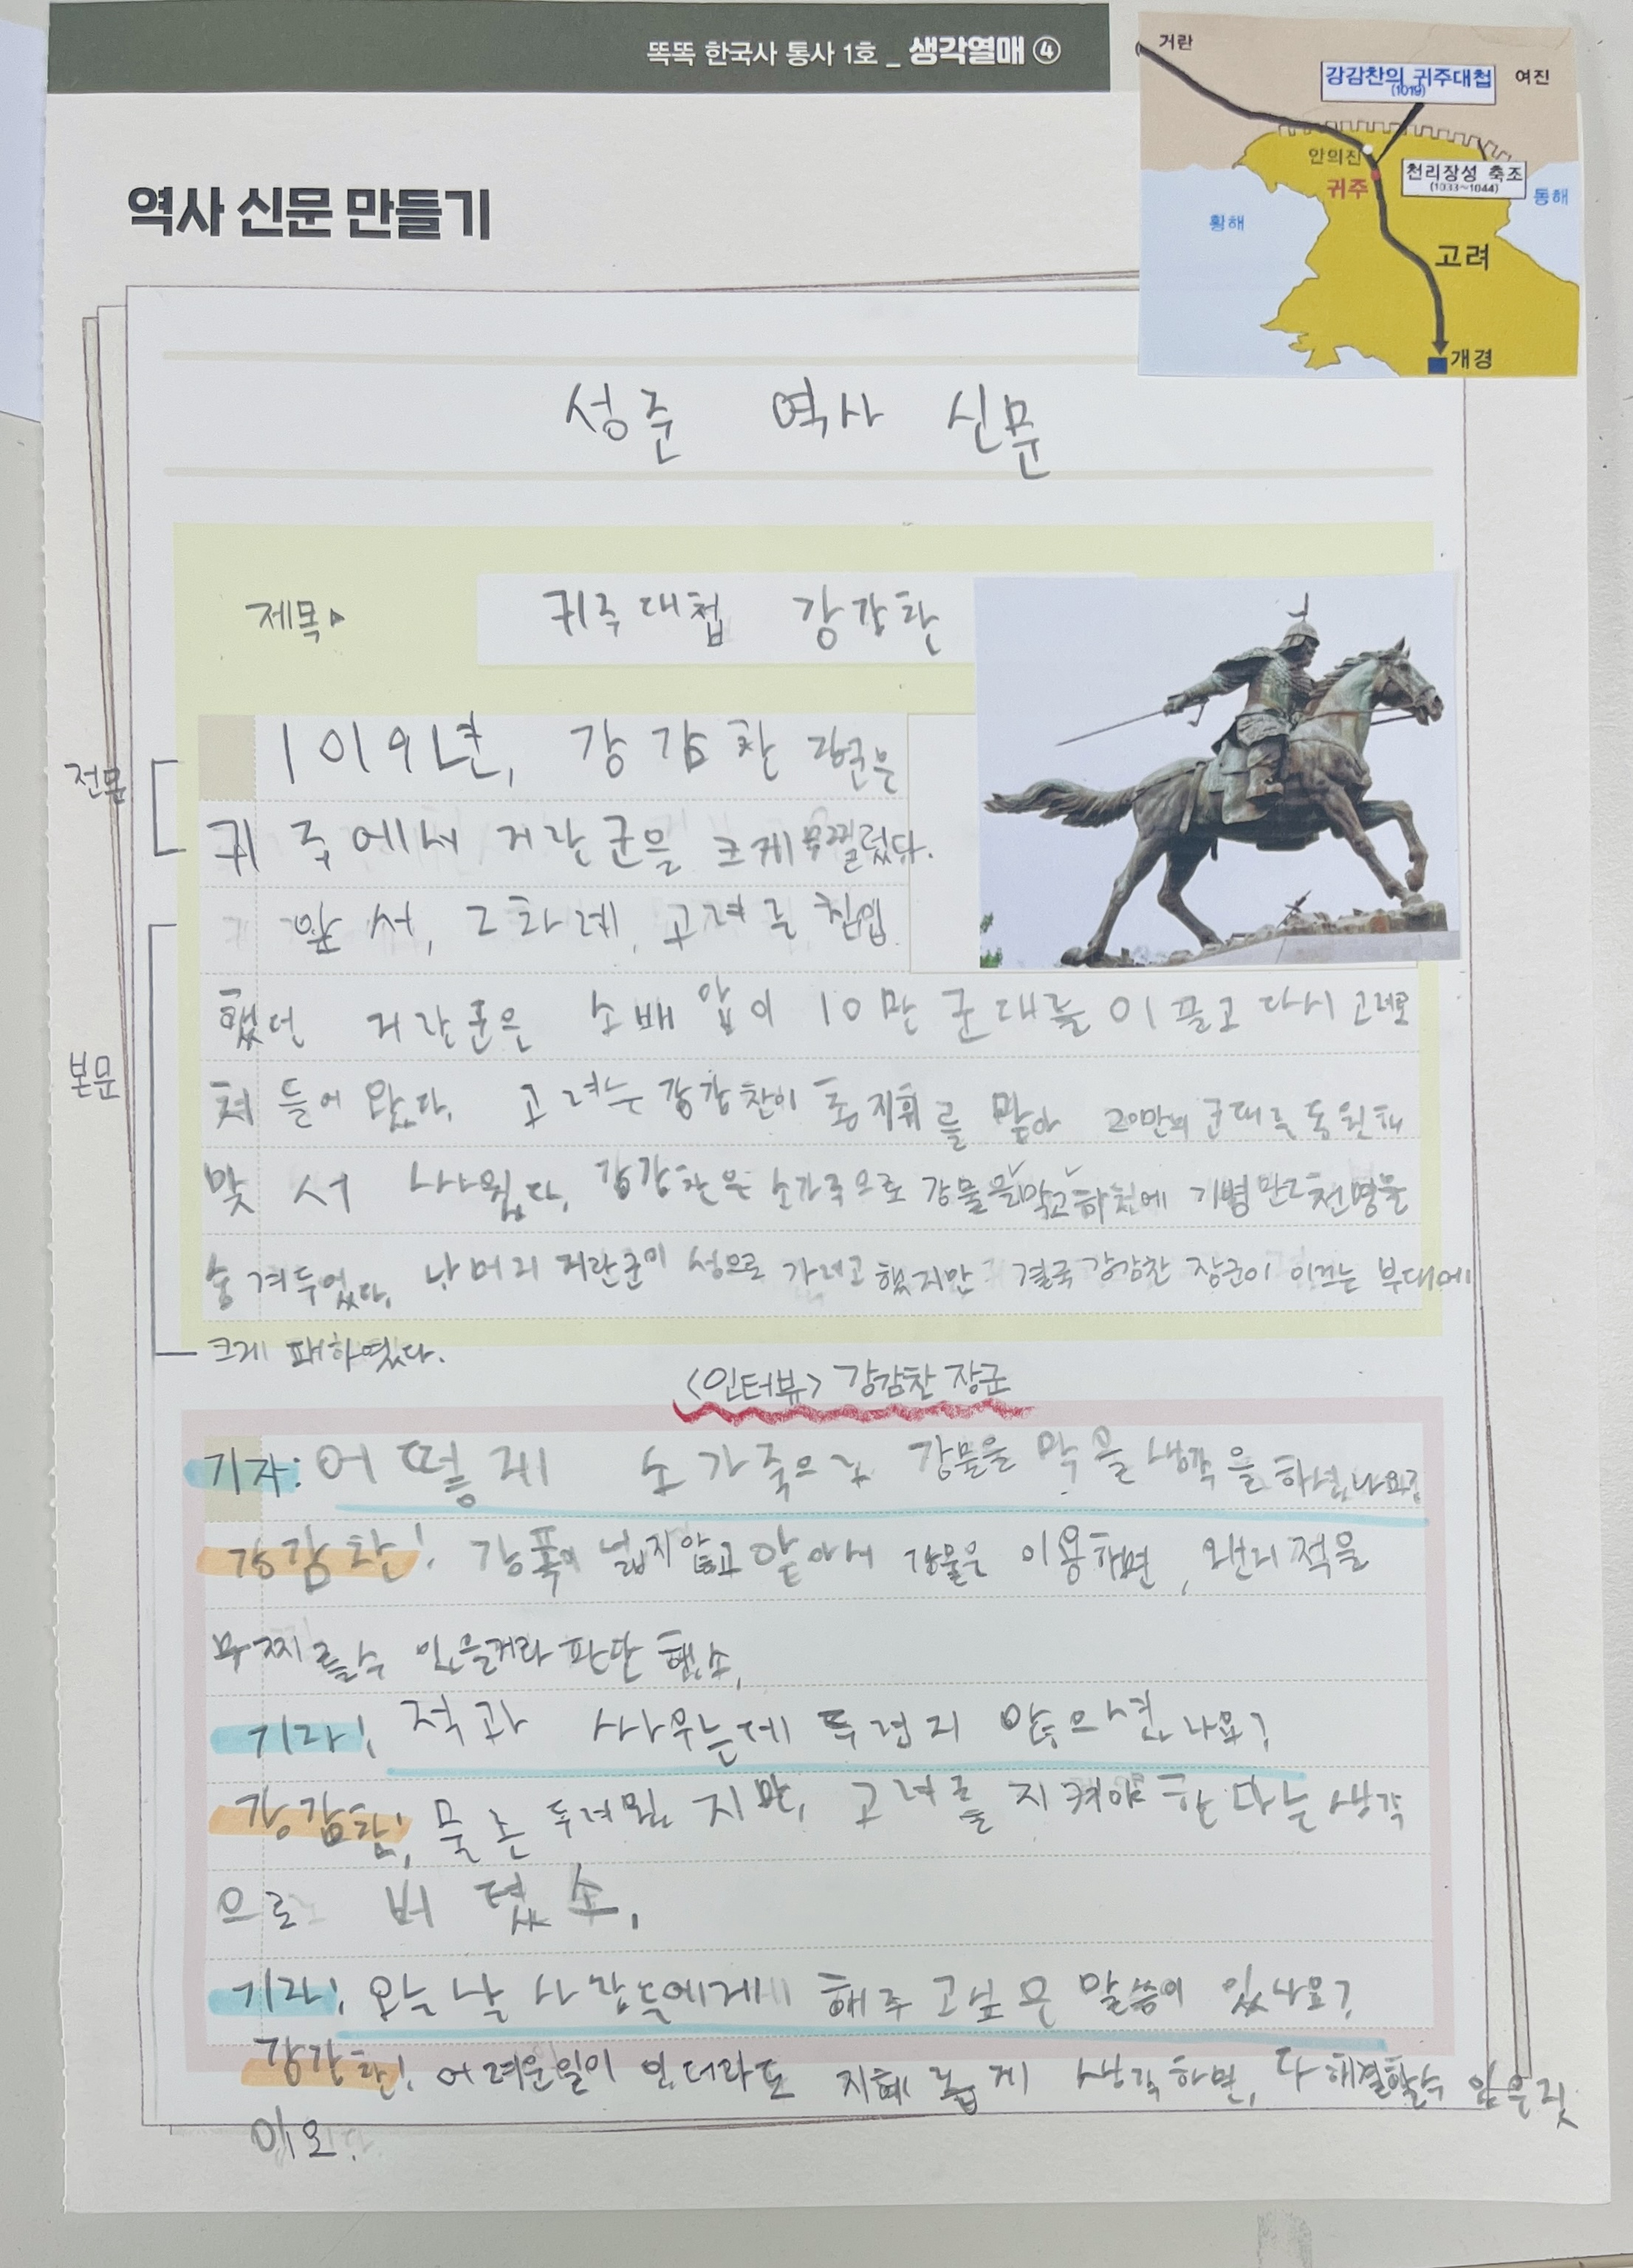 똑똑 한국사 통사 1호 _ 생각열매 ④
거란
강감찬의 귀주대첩
(1019)
여진
안의진
귀주
천리장성 축조
(1033~1044)
동해
황해
고려
개경
역사 신문 만들기
성준 역사 신문
제목▶
귀주대첩 강감찬
전문
1019년, 강감찬 장군은
귀주에서 거란군을 크게 무찔렀다.
본문
앞서, 2차례, 고려를 침입
했던 거란군은 소배압이 10만 군대를 이끌고 다시 고려로
쳐들어 왔다. 고려는 강감찬이 총지휘를 맡아 20만의 군대를 동원해
맞서 싸웠다. 강감찬은 소가죽으로 강물을 막고 하천에 기병 만2천명을
숨겨두었다. 나머지 거란군이 성으로 가려고 했지만 결국 강감찬 장군이 이끄는 부대에
크게 패하였다.
<인터뷰> 강감찬 장군
기자: 어떻게 소가죽으로 강물을 막을 생각을 하셨나요?
강감찬: 강폭이 넓지않고 얕아서 강물을 이용하면, 왠지 적을
무찌를수 있을거라 판단했소.
기자: 적과 싸우는데 두렵지 않으셨나요?
강감찬: 물론 두려웠지만, 고려를 지켜야 한다는 생각
으로 버텼소.
기자: 오늘날 사람들에게 해주고싶은 말씀이 있나요?
강감찬: 어려운일이 있더라도 지혜롭게 생각하면, 다 해결할수 있을것
이오.